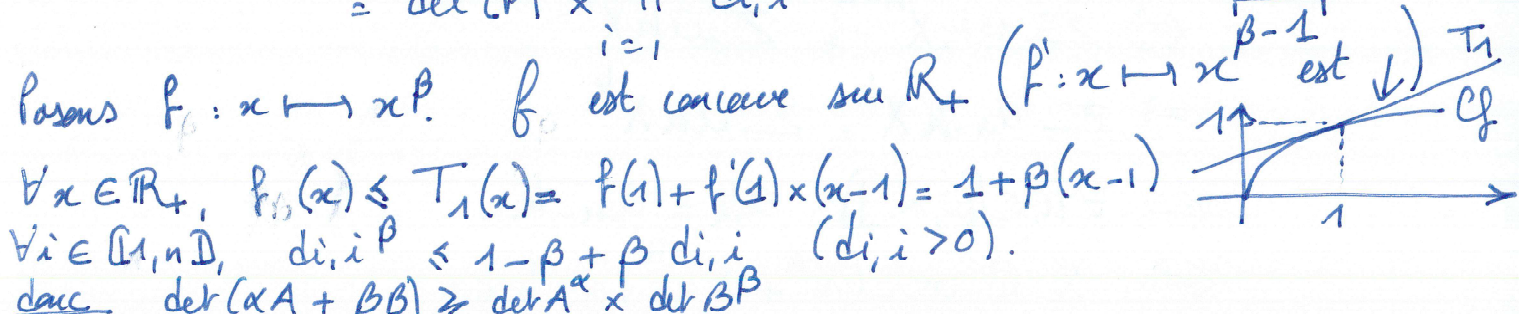 = det(P) × Π di,i
i=1
Posons f : x ⟼ x^β. f est concave sur R₊ (f' : x ⟼ x^{β-1} est ↓)
∀x ∈ R₊, f(x) ≤ T₁(x) = f(1) + f'(1) × (x-1) = 1 + β(x-1)
∀i ∈ ⟦1,n⟧, di,i^β ≤ 1-β + β di,i (di,i > 0).
donc det(αA + βB) ≥ det A^α × det B^β
T₁
Cf
1
1